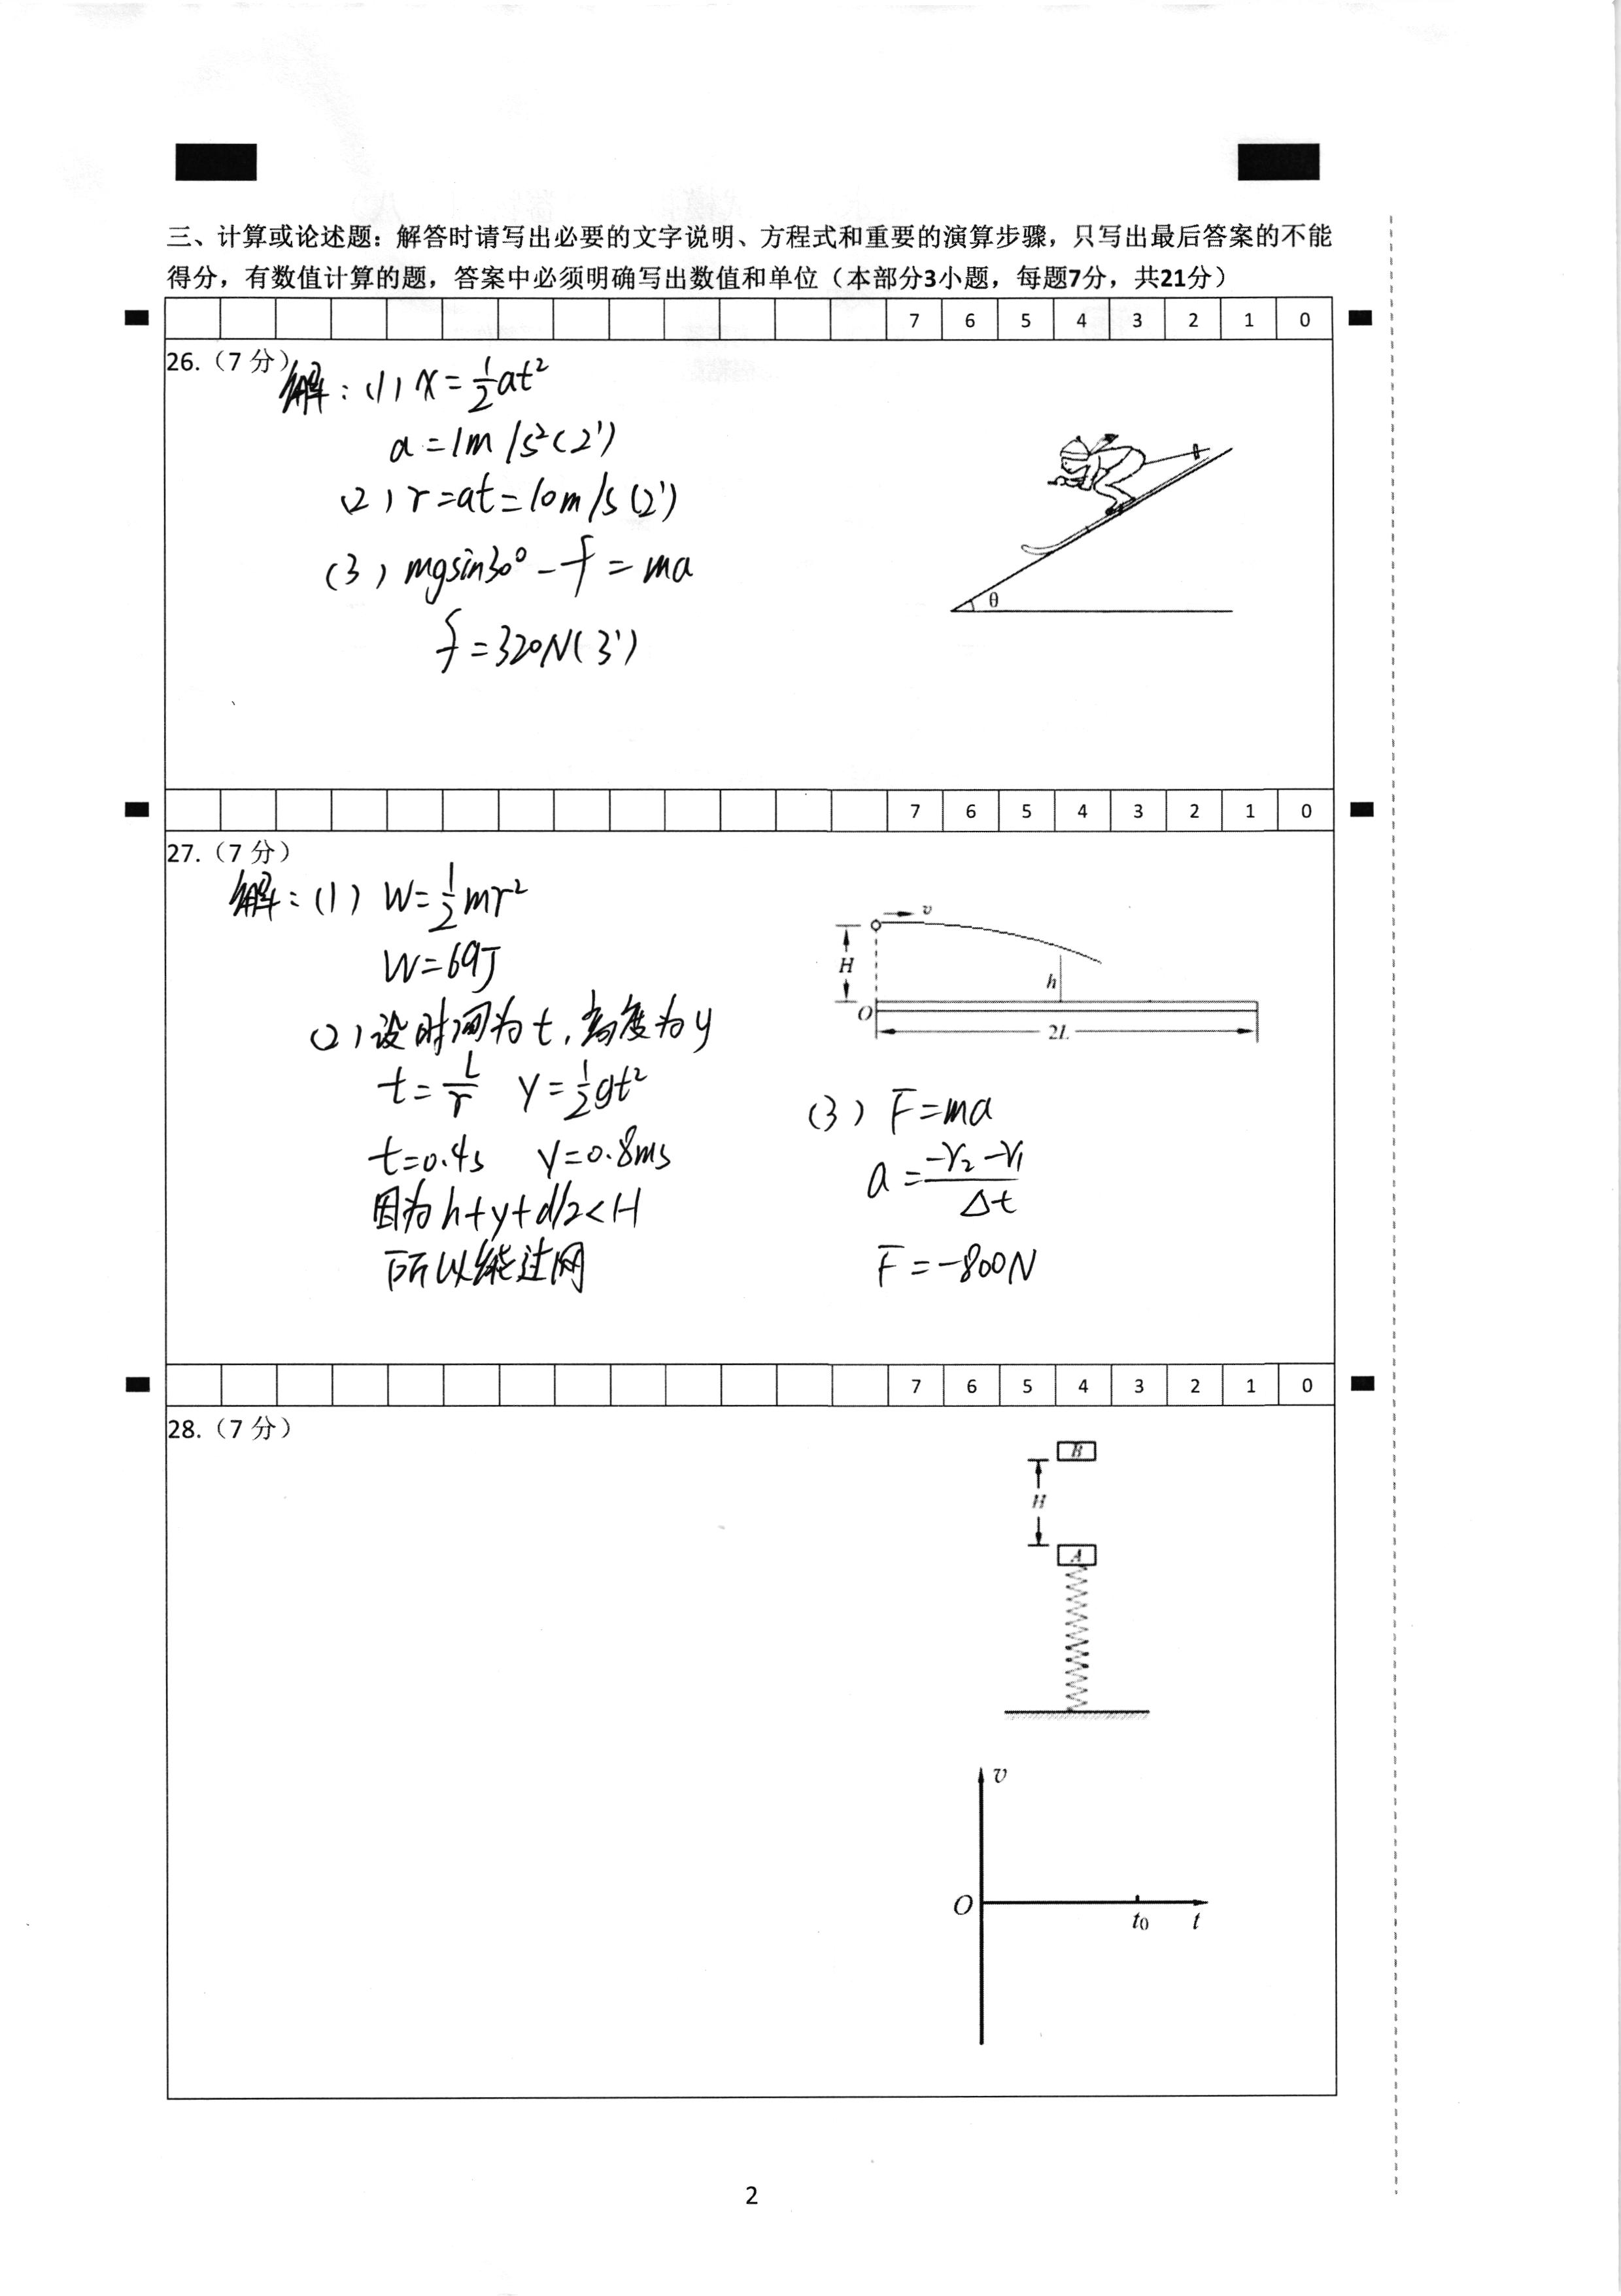 三、计算或论述题：解答时请写出必要的文字说明、方程式和重要的演算步骤，只写出最后答案的不能
得分，有数值计算的题，答案中必须明确写出数值和单位（本部分3小题，每题7分，共21分）
7 6 5 4 3 2 1 0
26.（7 分）
解：(1) x=½at²
a=1m/s²(2')
(2) r=at=10m/s(2')
(3) mgsin30°-f=ma
f=320N(3')
θ
7 6 5 4 3 2 1 0
27.（7 分）
解：(1) W=½mr²
W=69J
(2) 设时间为t，高度为y
t=L/r y=½gt²
t=0.4s y=0.8ms
因为h+y+d/2<H
所以能过网
v
H
h
O
2L
(3) F=ma
a=(-v₂-v₁)/Δt
F=-800N
7 6 5 4 3 2 1 0
28.（7 分）
B
H
A
v
O
t₀ t
2